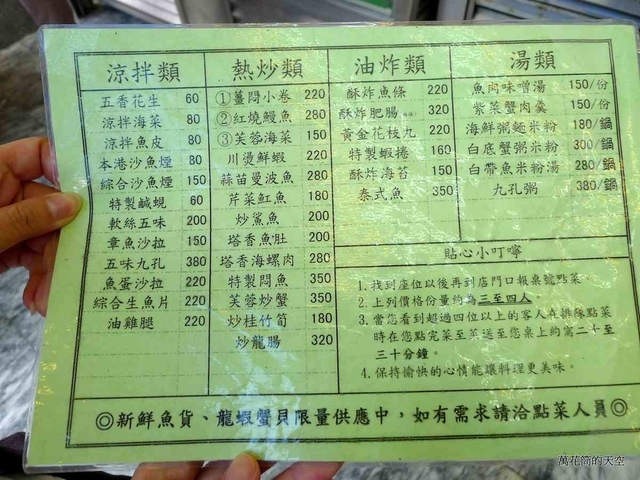 涼拌類
五香花生 60
涼拌海菜 80
涼拌魚皮 80
本港沙魚煙 80
綜合沙魚煙 150
特製鹹蜆 60
軟絲五味 200
章魚沙拉 150
五味九孔 380
魚蛋沙拉 220
綜合生魚片 220
油雞腿 220
熱炒類
①薑悶小卷 220
②紅燒鰻魚 280
③芙蓉海菜 150
川燙鮮蝦 220
蒜苗曼波魚 280
芹菜魟魚 180
炒鯊魚 200
塔香魚肚 200
塔香海螺肉 280
特製悶魚 350
芙蓉炒蟹 350
炒桂竹筍 180
炒龍腸 320
油炸類
酥炸魚條 220
酥炸肥腸 320
黃金花枝丸 220
特製蝦捲 160
酥炸海苔 150
泰式魚 350
湯類
魚肉味噌湯 150/份
紫菜蟹肉羹 150/份
海鮮粥麵米粉 180/鍋
白底蟹粥米粉 300/鍋
白帶魚米粉湯 280/鍋
九孔粥 380/鍋
貼心小叮嚀
1. 找到座位以後再到店門口報桌號點菜。
2. 上列價格份量約為三至四人。
3. 當您看到超過四位以上的客人在排隊點菜
時在您點完菜至菜送至您桌上約需二十至
三十分鐘。
4. 保持愉快的心情能讓料理更美味。
◎新鮮魚貨、龍蝦蟹貝限量供應中，如有需求請洽點菜人員◎
萬花筒的天空